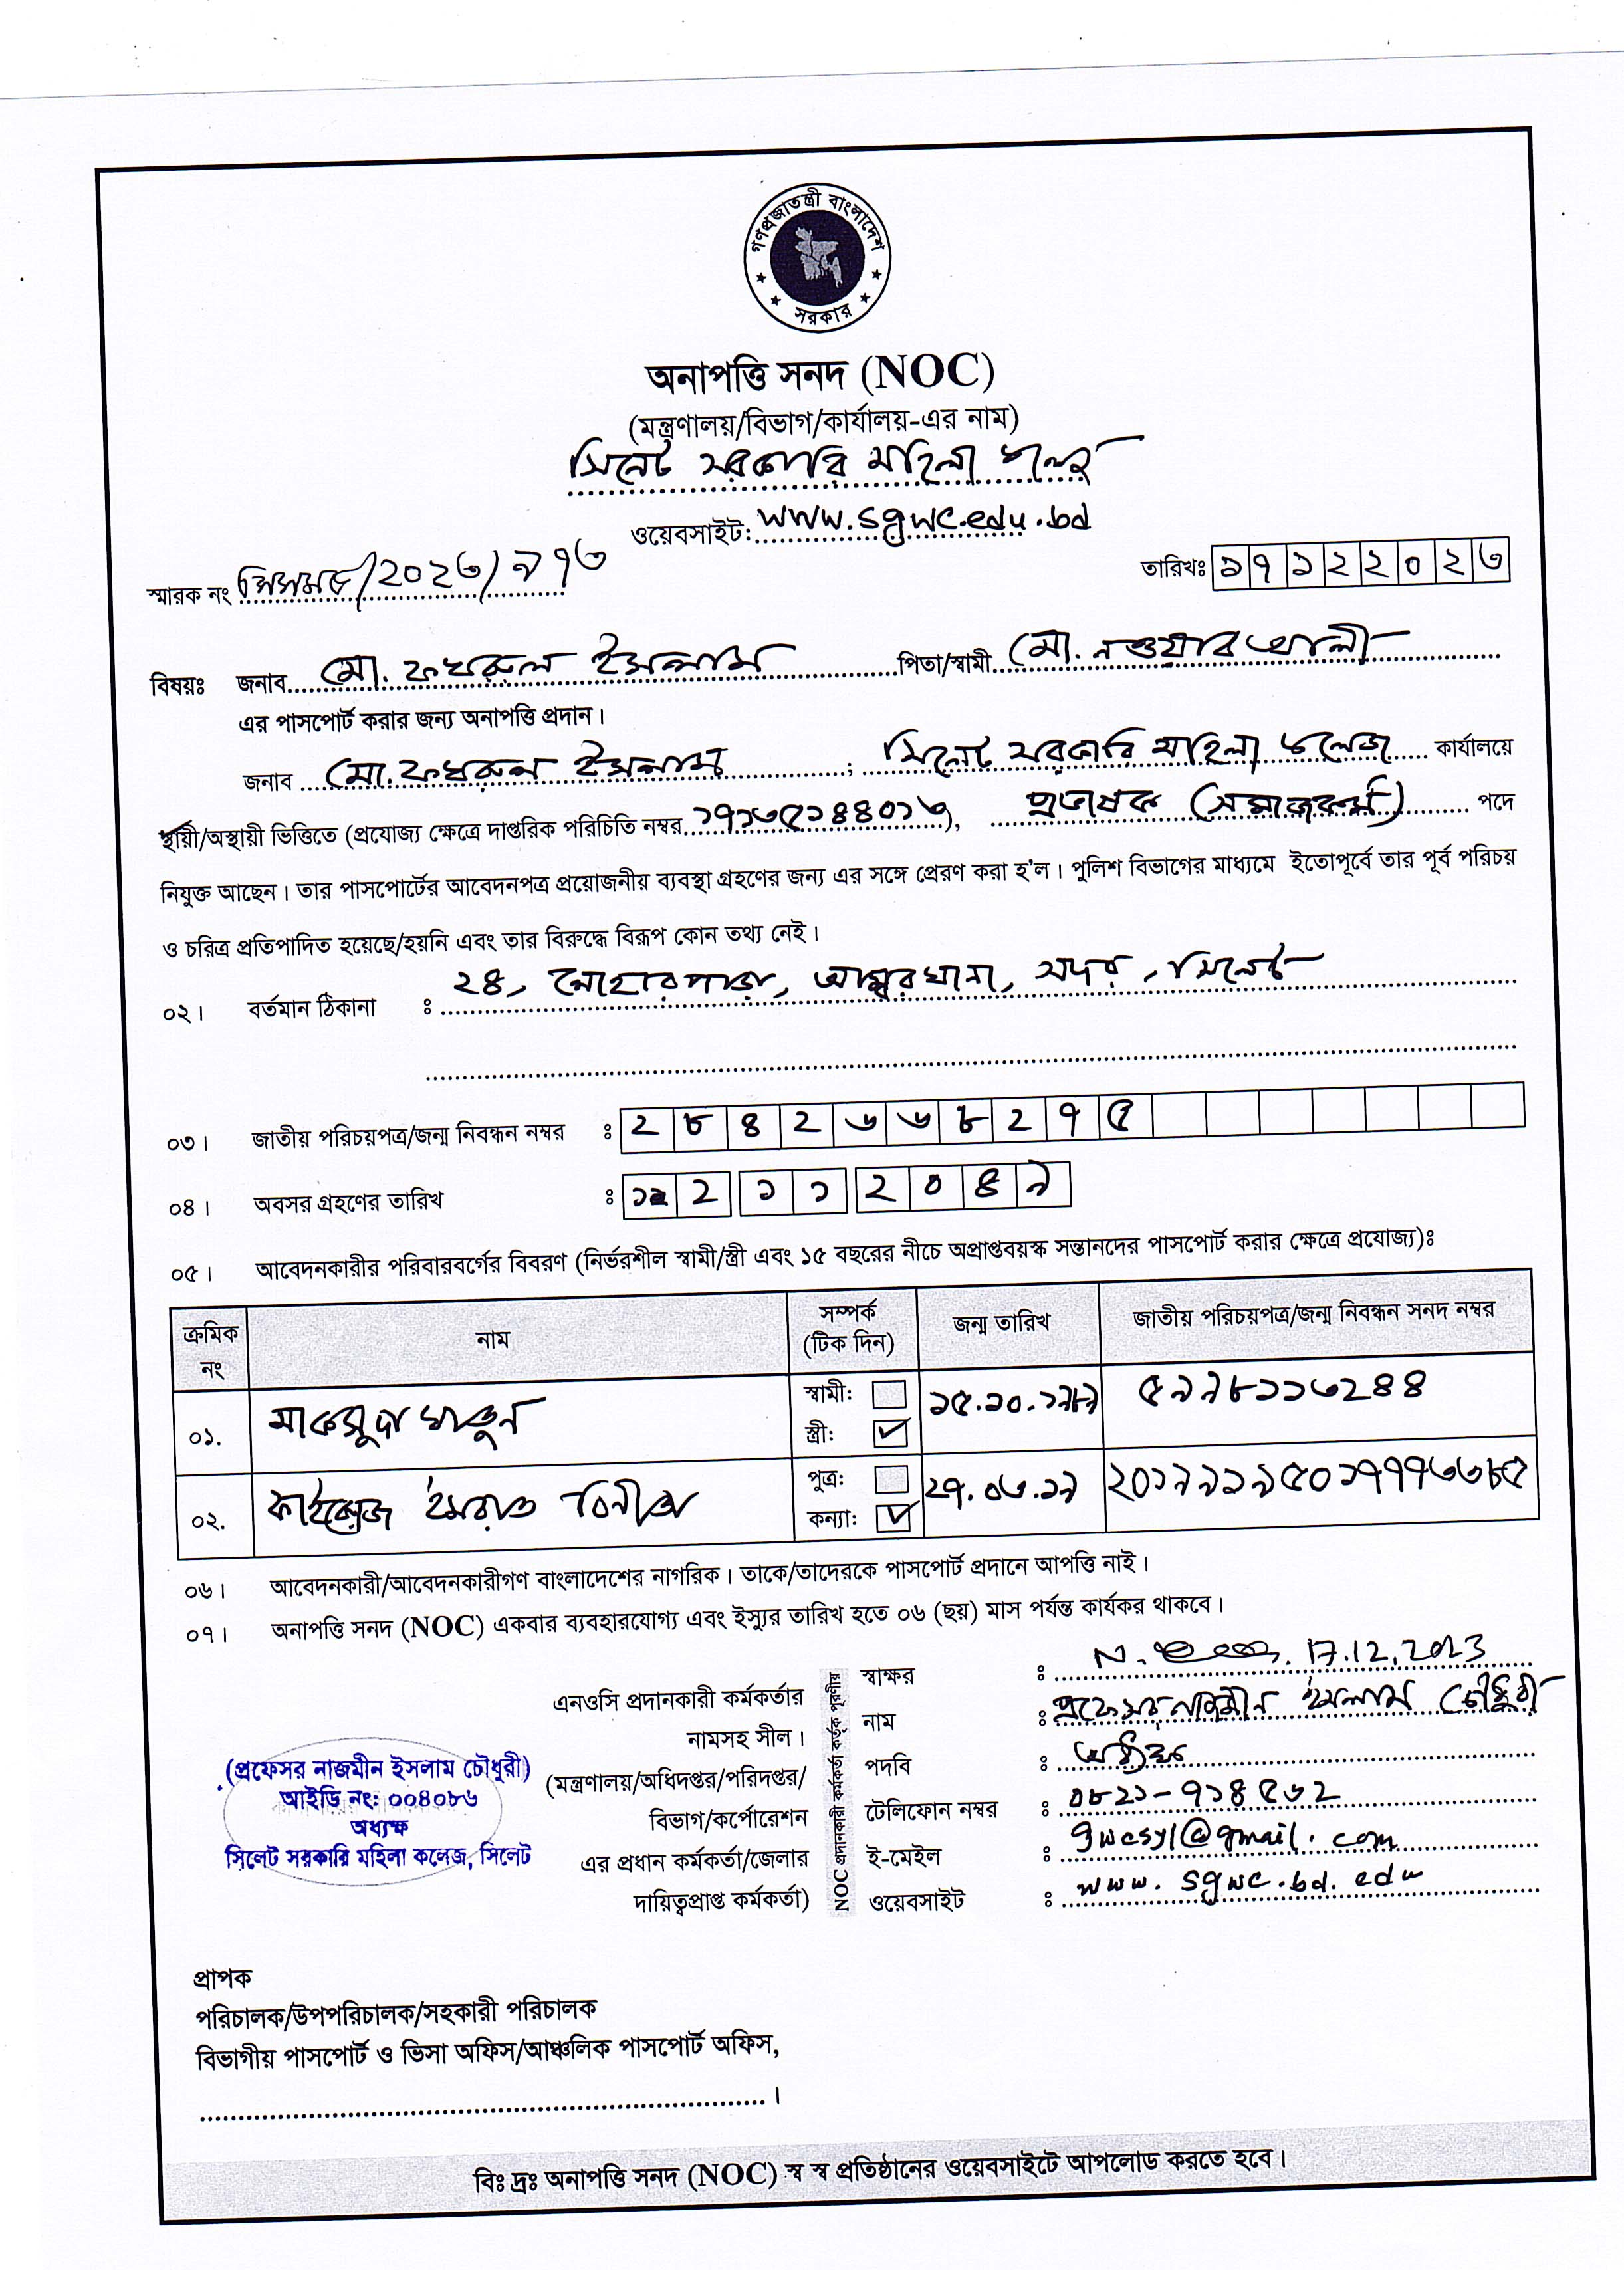 গণপ্রজাতন্ত্রী বাংলাদেশ
সরকার
অনাপত্তি সনদ (NOC)
(মন্ত্রণালয়/বিভাগ/কার্যালয়-এর নাম)
সিলেট সরকারি মহিলা কলেজ
ওয়েবসাইট: www.sgwc.edu.bd
স্মারক নং সিসমক/২০২৩/৯৭৩
তারিখঃ ১৭১২২০২৩
বিষয়ঃ জনাব মো. ফখরুল ইসলাম পিতা/স্বামী মো. নওয়াব আলী
এর পাসপোর্ট করার জন্য অনাপত্তি প্রদান।
জনাব মো. ফখরুল ইসলাম ; সিলেট সরকারি মহিলা কলেজ কার্যালয়ে
স্থায়ী/অস্থায়ী ভিত্তিতে (প্রযোজ্য ক্ষেত্রে দাপ্তরিক পরিচিতি নম্বর ১৭১৩৫১৪৪০১৩), প্রভাষক (সমাজকর্ম) পদে
নিযুক্ত আছেন। তার পাসপোর্টের আবেদনপত্র প্রয়োজনীয় ব্যবস্থা গ্রহণের জন্য এর সঙ্গে প্রেরণ করা হ'ল। পুলিশ বিভাগের মাধ্যমে ইতোপূর্বে তার পূর্ব পরিচয়
ও চরিত্র প্রতিপাদিত হয়েছে/হয়নি এবং তার বিরুদ্ধে বিরূপ কোন তথ্য নেই।
০২। বর্তমান ঠিকানা : ২৪, লোহারপাড়া, আম্বরখানা, সদর, সিলেট
০৩। জাতীয় পরিচয়পত্র/জন্ম নিবন্ধন নম্বর : ২৮৪২৬৬৮২৭৫
০৪। অবসর গ্রহণের তারিখ : ২ ১১ ২০৪৯
০৫। আবেদনকারীর পরিবারবর্গের বিবরণ (নির্ভরশীল স্বামী/স্ত্রী এবং ১৫ বছরের নীচে অপ্রাপ্তবয়স্ক সন্তানদের পাসপোর্ট করার ক্ষেত্রে প্রযোজ্য)ঃ
ক্রমিক নং নাম সম্পর্ক (টিক দিন) জন্ম তারিখ জাতীয় পরিচয়পত্র/জন্ম নিবন্ধন সনদ নম্বর
০১. মাকসুদা খাতুন স্বামী: স্ত্রী: ✓ ১৫.১০.১৯৮৯ ৫৯৯৮১১৩২৪৪
০২. ইসরাত পুত্র: কন্যা: ✓ ২৭.০৬.১৯ ২০১৯৯১৯৫০১৭৭৭৩৩৮৫
০৬। আবেদনকারী/আবেদনকারীগণ বাংলাদেশের নাগরিক। তাকে/তাদেরকে পাসপোর্ট প্রদানে আপত্তি নাই।
০৭। অনাপত্তি সনদ (NOC) একবার ব্যবহারযোগ্য এবং ইস্যুর তারিখ হতে ০৬ (ছয়) মাস পর্যন্ত কার্যকর থাকবে।
এনওসি প্রদানকারী কর্মকর্তার
নামসহ সীল।
(মন্ত্রণালয়/অধিদপ্তর/পরিদপ্তর/
বিভাগ/কর্পোরেশন
এর প্রধান কর্মকর্তা/জেলার
দায়িত্বপ্রাপ্ত কর্মকর্তা)
(প্রফেসর নাজমীন ইসলাম চৌধুরী)
আইডি নং: ০০৪০৮৬
অধ্যক্ষ
সিলেট সরকারি মহিলা কলেজ, সিলেট
NOC প্রদানকারী কর্মকর্তা কর্তৃক পূরণীয়
স্বাক্ষর : 17.12.2023
নাম : প্রফেসর নাজমীন ইসলাম চৌধুরী
পদবি : অধ্যক্ষ
টেলিফোন নম্বর : ০৮২১-৭১৪৫৬২
ই-মেইল : gwcsyl@gmail.com
ওয়েবসাইট : www.sgwc.bd.edu
প্রাপক
পরিচালক/উপপরিচালক/সহকারী পরিচালক
বিভাগীয় পাসপোর্ট ও ভিসা অফিস/আঞ্চলিক পাসপোর্ট অফিস,
বিঃ দ্রঃ অনাপত্তি সনদ (NOC) স্ব স্ব প্রতিষ্ঠানের ওয়েবসাইটে আপলোড করতে হবে।